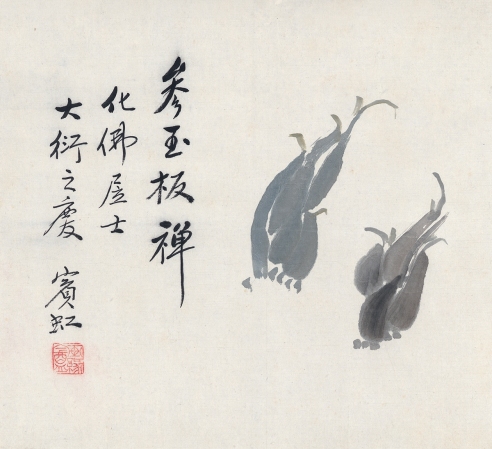 參玉板禅
化佛居士
大衍之慶
賓虹